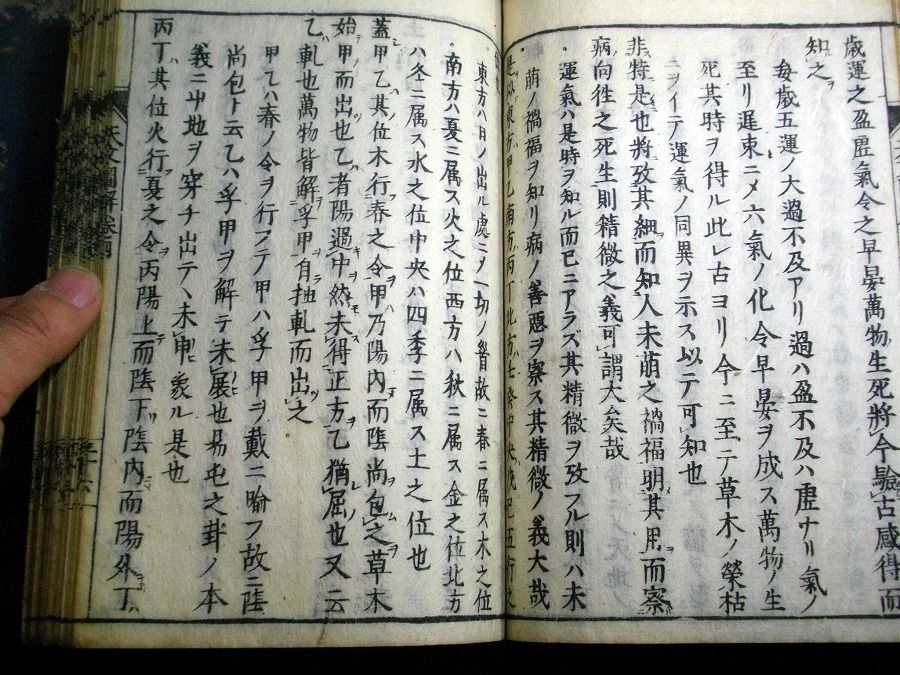 歳運之盈虚氣令之早晏萬物生死將今驗古咸得而
知之
毎歳五運ノ大過不及アリ過ハ盈不及ハ虚ナリ氣ノ
至リ遲速ニメ六氣ノ化令早晏ヲ成ス萬物ノ生
死其時ヲ得ル此レ古ヨリ今ニ至テ草木ノ榮枯
ニヲイテ運氣ノ同異ヲ示ス以テ可知也
非特是也將攷其細而知人未萌之禍福明其用而察
病向徃之死生則精微之義可謂大矣哉
運氣ハ是時ヲ知ル而已ニアラズ其精微ヲ攷フル則ハ未
萌ノ禍福ヲ知リ病ノ善惡ヲ察ス其精微ノ義大哉
東方甲乙南方丙丁北方壬癸中央戊己五行之
東方ハ日ノ出ル處ニメ一切ノ首故ニ春ニ属ス木之位
南方ハ夏ニ属ス火之位西方ハ秋ニ属ス金之位北方
ハ冬ニ属ス水之位中央ハ四季ニ属ス土之位也
蓋甲乙其位木行春之令甲乃陽內而陰尚包之草木
始甲而出也乙者陽過中然未得正方乙猶屈也又云
乙軋也萬物皆解孚甲自抽軋而出之
甲乙ハ春ノ令ヲ行フテ甲ハ孚甲ヲ戴ニ喻フ故ニ陰
尚包ト云乙ハ孚甲ヲ解テ未展也易屯之卦ノ本
義ニ屮地ヲ穿チ出テヽ未申象ル是也
丙丁其位火行夏之令丙陽上而陰下陰內而陽外丁
天文圖解卷四